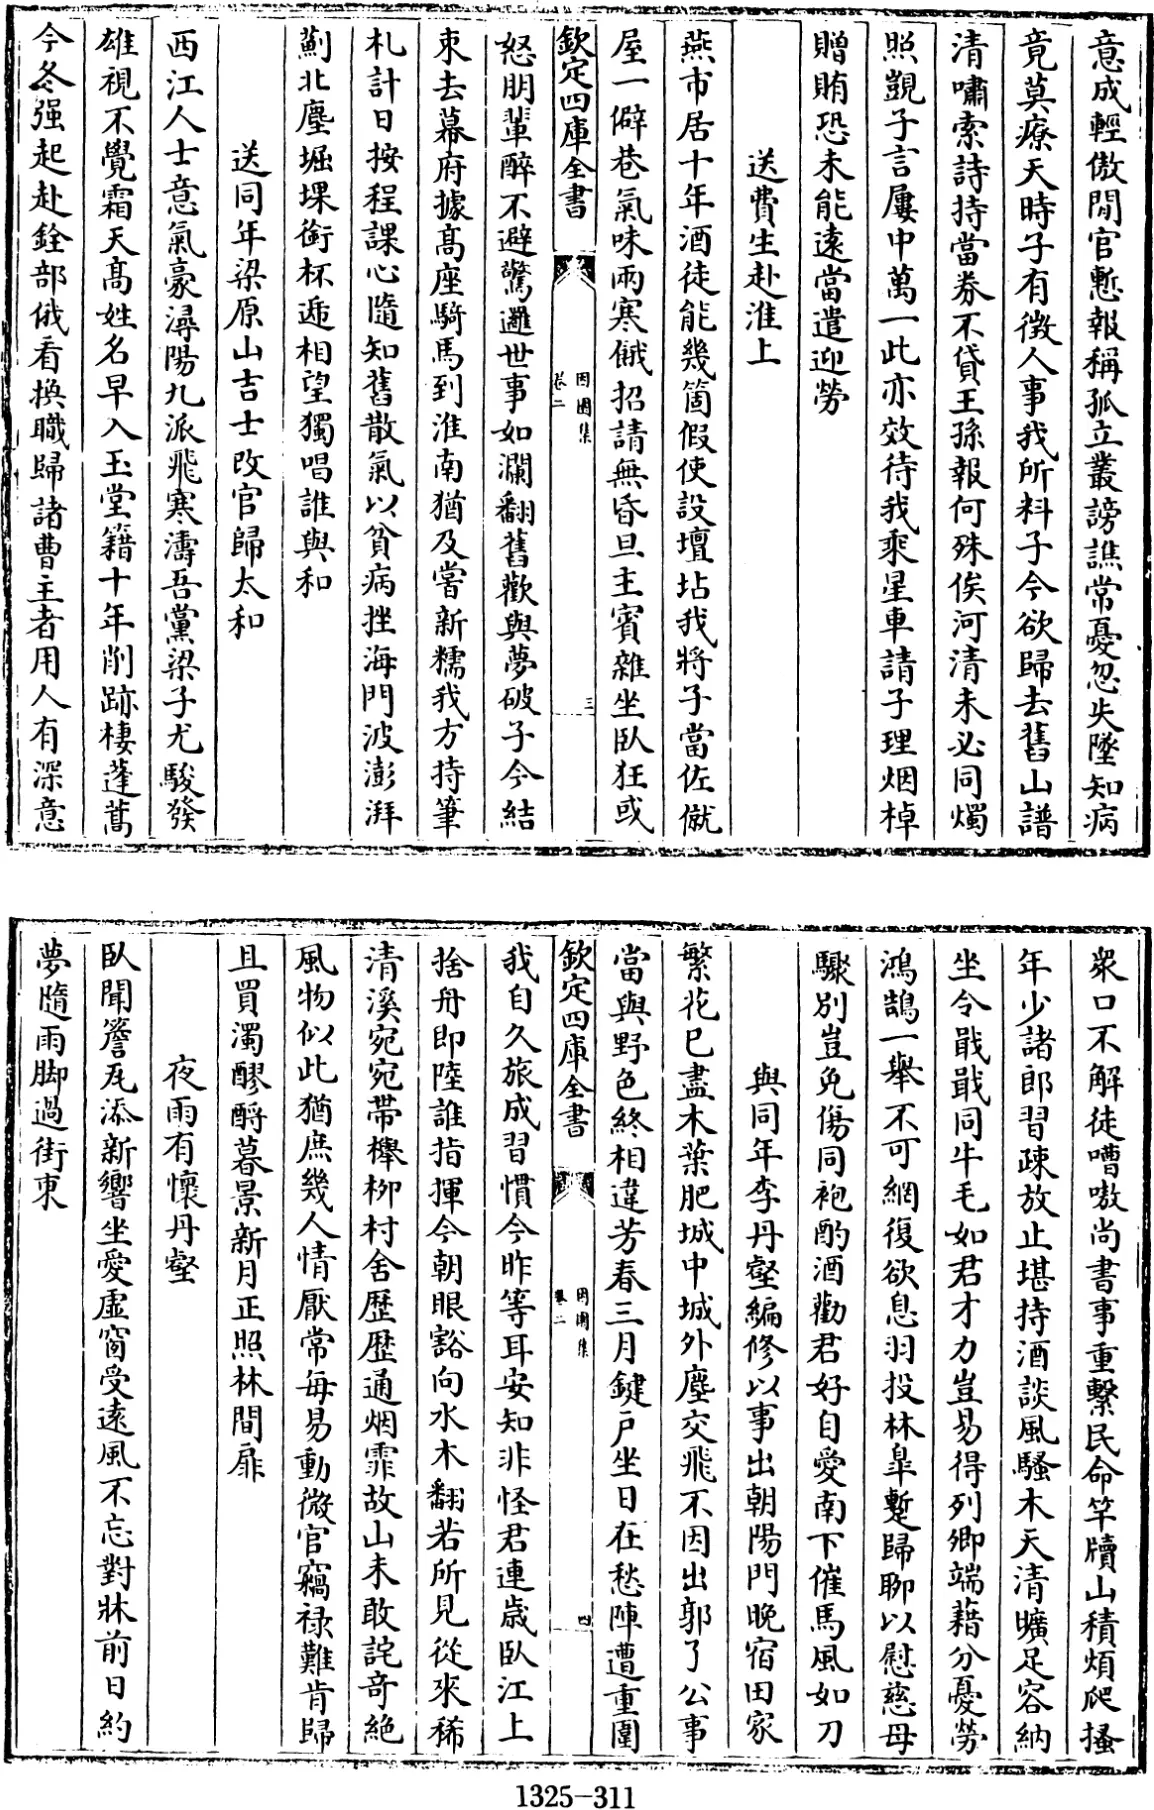 意成輕傲閒官慙報稱孤立叢謗譙常憂忽失墜知病
竟莫療天時子有徴人事我所料子今欲歸去舊山譜
清嘯索詩持當券不貸王孫報何殊俟河清未必同燭
照覬子言屢中萬一此亦效待我乘星車請子理烟棹
贈賄恐未能遠當遣迎勞
送費生赴淮上
燕市居十年酒徒能幾箇假使設壇坫我將子當佐僦
屋一僻巷氣味兩寒餓招請無昏旦主賓雜坐臥狂或
欽定四庫全書
因園集
卷二
三
怒朋輩醉不避驚邏世事如瀾翻舊歡與夢破子今結
束去幕府據髙座騎馬到淮南猶及嘗新糯我方持筆
札計日按程課心隨知舊散氣以貧病挫海門波澎湃
薊北塵堀堁銜杯遞相望獨唱誰與和
送同年梁原山吉士改官歸太和
西江人士意氣豪潯陽九派飛寒濤吾黨梁子尤駿發
雄視不覺霜天髙姓名早入玉堂籍十年削跡棲蓬蒿
今冬强起赴銓部俄看換職歸諸曹主者用人有深意
衆口不解徒嘈嗷尚書事重繫民命竿牘山積煩爬搔
年少諸郎習疎放止堪持酒談風騷木天清曠足容納
坐令戢戢同牛毛如君才力豈易得列卿端藉分憂勞
鴻鵠一舉不可網復欲息羽投林臯蹔歸聊以慰慈母
驟別豈免傷同袍酌酒勸君好自愛南下催馬風如刀
與同年李丹壑編修以事出朝陽門晚宿田家
繁花已盡木葉肥城中城外塵交飛不因出郭了公事
當與野色終相違芳春三月鍵戸坐日在愁陣遭重圍
欽定四庫全書
因園集
卷二
四
我自久旅成習慣今昨等耳安知非怪君連歲臥江上
捨舟即陸誰指揮今朝眼豁向水木翻若所見從來稀
清溪宛宛帶櫸栁村舍歷歷通烟霏故山未敢詫奇絶
風物似此猶庶幾人情厭常每易動微官竊禄難肯歸
且買濁醪酹暮景新月正照林間扉
夜雨有懷丹壑
臥聞簷瓦添新響坐愛虛窗受逺風不忘對牀前日約
夢隨雨脚過街東
1325-311